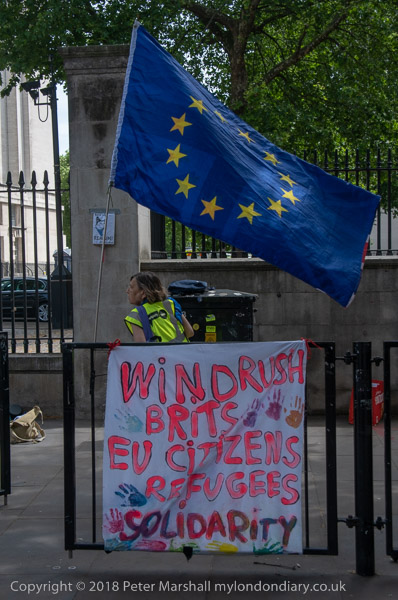 WINDRUSH
BRITS
EU CITIZENS
REFUGEES
SOLIDARITY
Copyright © 2018 Peter Marshall mylondondiary.co.uk